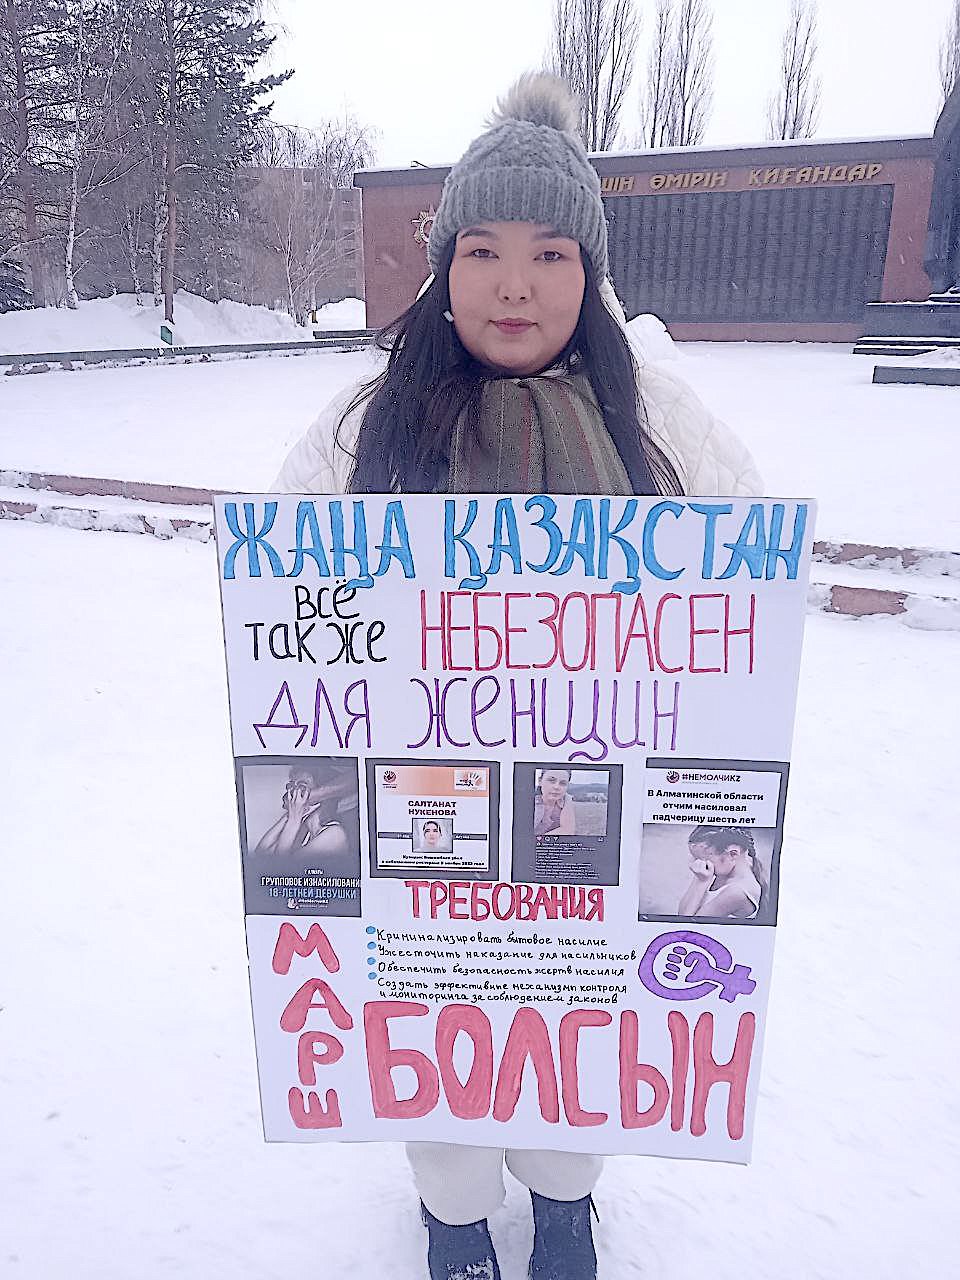 ШІН ӨМІРІН ҚИҒАНДАР
ЖАҢА ҚАЗАҚСТАН
ВСЁ
ТАКЖЕ
НЕБЕЗОПАСЕН
ДЛЯ ЖЕНЩИН
ГРУППОВОЕ ИЗНАСИЛОВАНИ
18-ЛЕТНЕЙ ДЕВУШКИ
САЛТАНАТ
НУКЕНОВА
#НЕМОЛЧИKZ
В Алматинской области
отчим насиловал
падчерицу шесть лет
ТРЕБОВАНИЯ
Криминализировать бытовое насилие
Ужесточить наказание для насильников
Обеспечить безопасность жертв насилия
Создать эффективные механизмы контроля
и мониторинга за соблюдением законов
МАРШ
БОЛСЫН